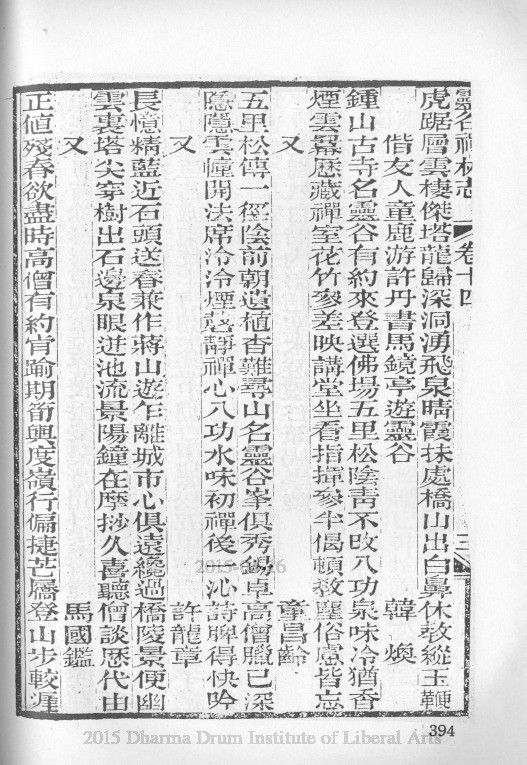 靈谷禪林志 卷十四 三
虎踞層雲棲傑塔龍歸深洞湧飛泉晴霞抹處橋山出白鼻休教縱玉鞭
偕友人童鹿游許丹書馬鏡亭遊靈谷 韓煥
鍾山古寺名靈谷有約來登選佛場五里松陰靑不改八功泉味冷猶香
煙雲羃歷藏禪室花竹參差映講堂坐看指揮參半偈頓教塵俗慮皆忘
又 童昌齡
五里松傳一徑陰前朝遺植杳難尋山名靈谷峯俱秀錫卓高僧臘已深
隱隱雲幢開法席泠泠煙磬靜禪心八功水味初禪後一沁詩脾得快吟
又 許龍章
長憶精藍近石頭送春兼作蔣山遊乍離城市心俱遠纔過橋陵景便幽
雲裏塔尖穿樹出石邊泉眼迸池流景陽鐘在摩挲久喜聽僧談歷代由
又 馬國鑑
正値殘春欲盡時高僧有約肯踰期筇輿度嶺行偏捷芒屩登山步較遲
394
2015-04-16
2015 Dharma Drum Institute of Liberal Arts